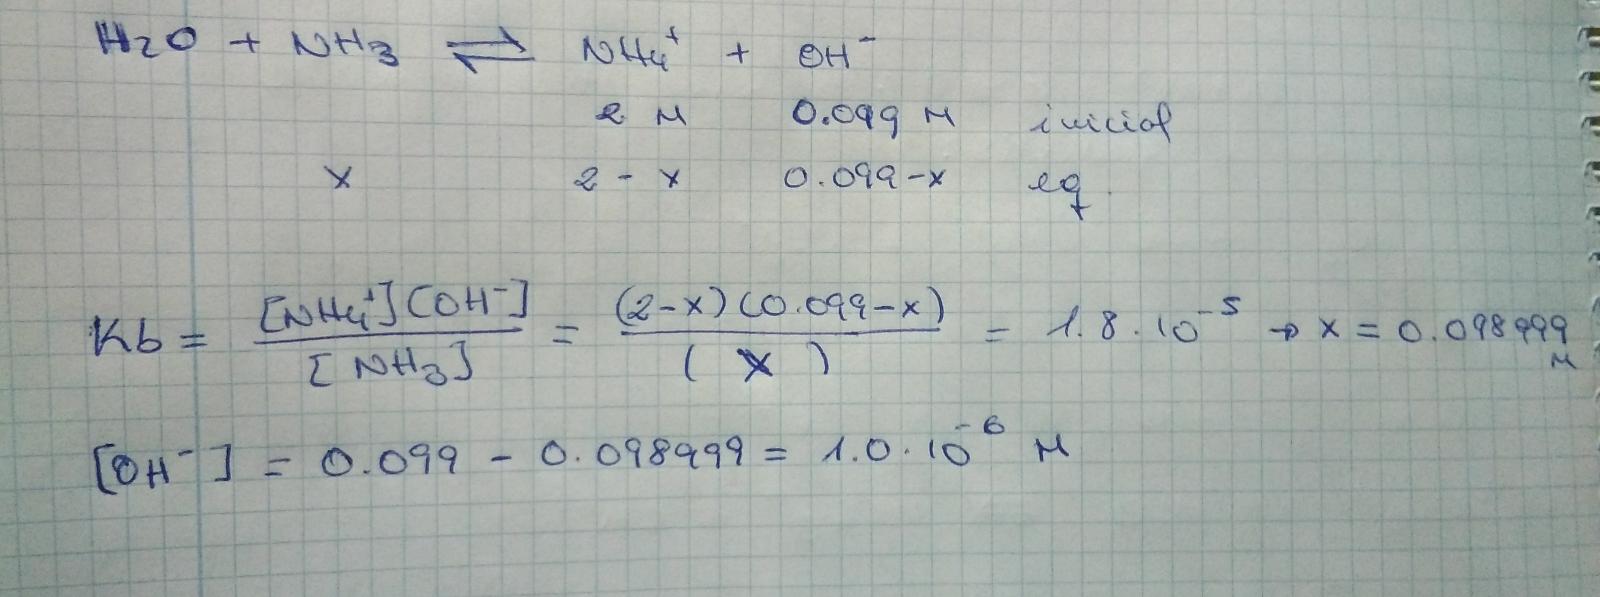 H2O + NH3 ⇌ NH4⁺ + OH⁻
2 M 0.099 M inicial
x 2 - x 0.099-x eq.
Kb = [NH4⁺][OH⁻] / [NH3] = (2-x)(0.099-x) / (x) = 1.8·10⁻⁵ → x = 0.098999 M
[OH⁻] = 0.099 - 0.098999 = 1.0·10⁻⁶ M